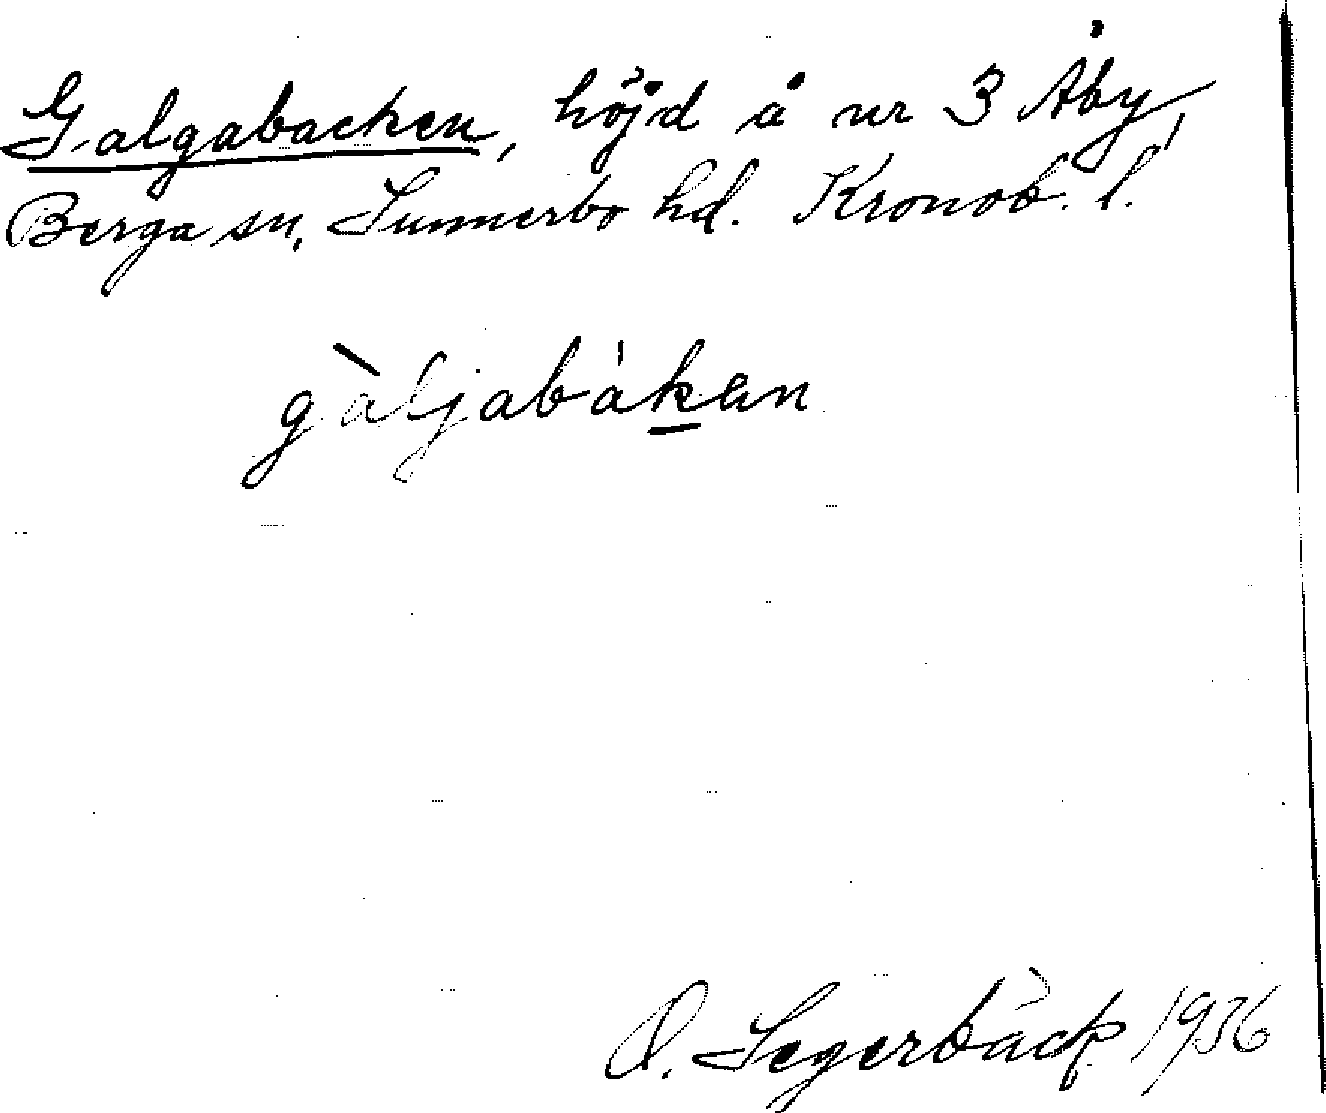 Galgabacken, höjd å nr 3 Åby,
Berga sn, Sunnerbo hd. Kronob. l.
gàljabákan
O. Segerbäck 1936